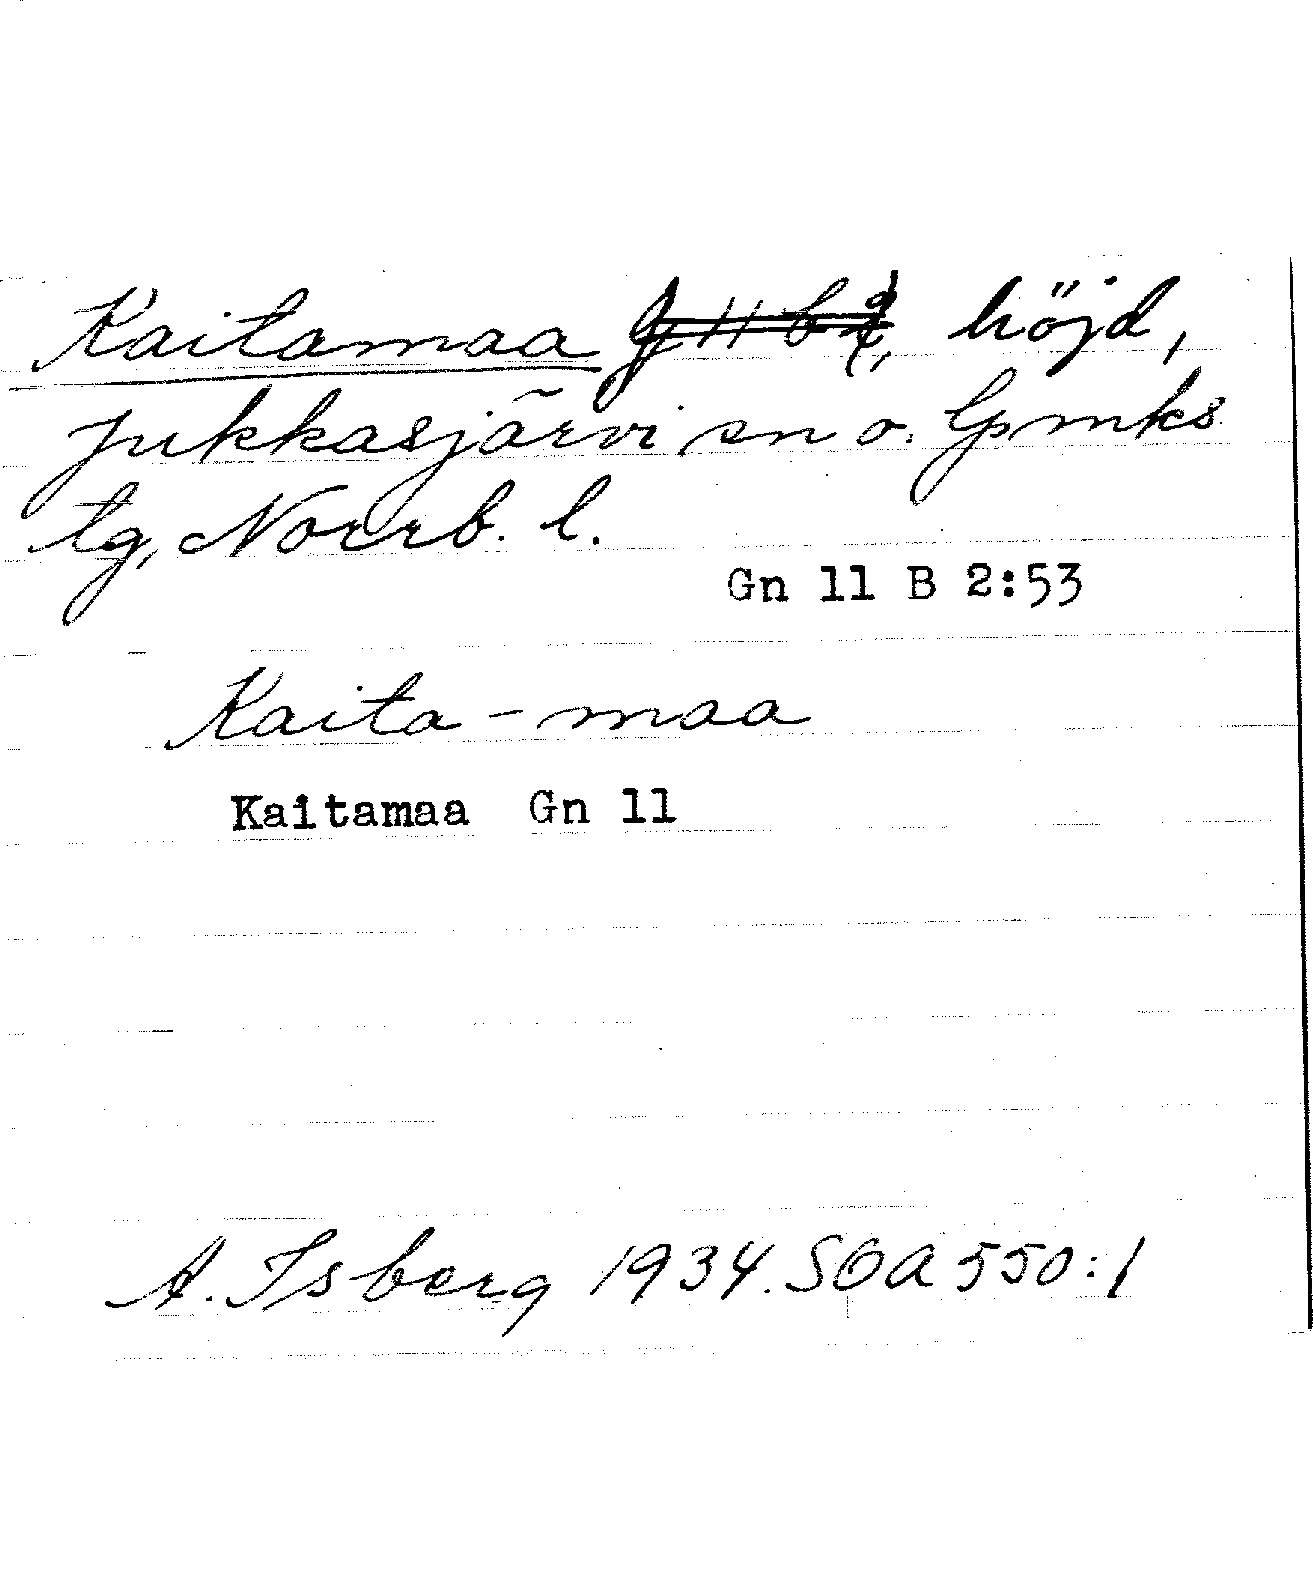 Kaitamaa höjd,
Jukkasjärvi sn o. lpmks
tg, Norrb. l.
Gn 11 B 2:53
Kaita-maa
Kaitamaa Gn 11
A. Isberg 1934. SOA 550:1